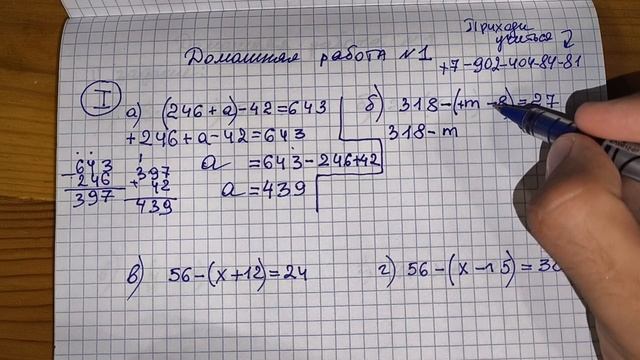 Приходи
учиться
Домашняя работа №1
+7-902-404-84-81
I
а) (246+a)-42=643
+246+a-42=643
a =643-246+42
a=439
643
- 246
397
397
+ 42
439
б) 318-(+m-8)=27
318-m
в) 56-(x+12)=24
г) 56-(x-15)=30